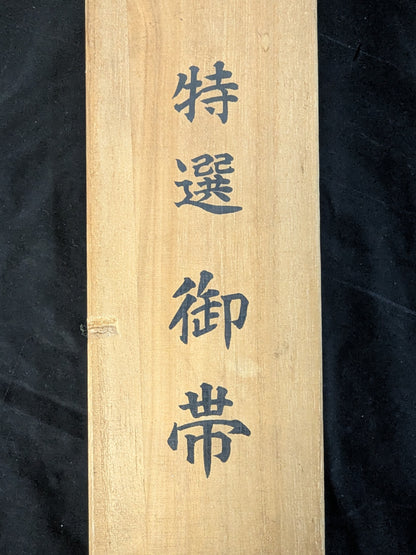 特選御帯